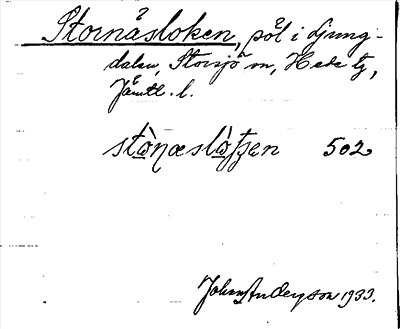 Stornåsloken, pöl i Ljung-
dalen, Storsjö sn, Hede tg,
Jämtl. l.
stò̱næslò̱tʃen 502
Johan Anderson 1933.